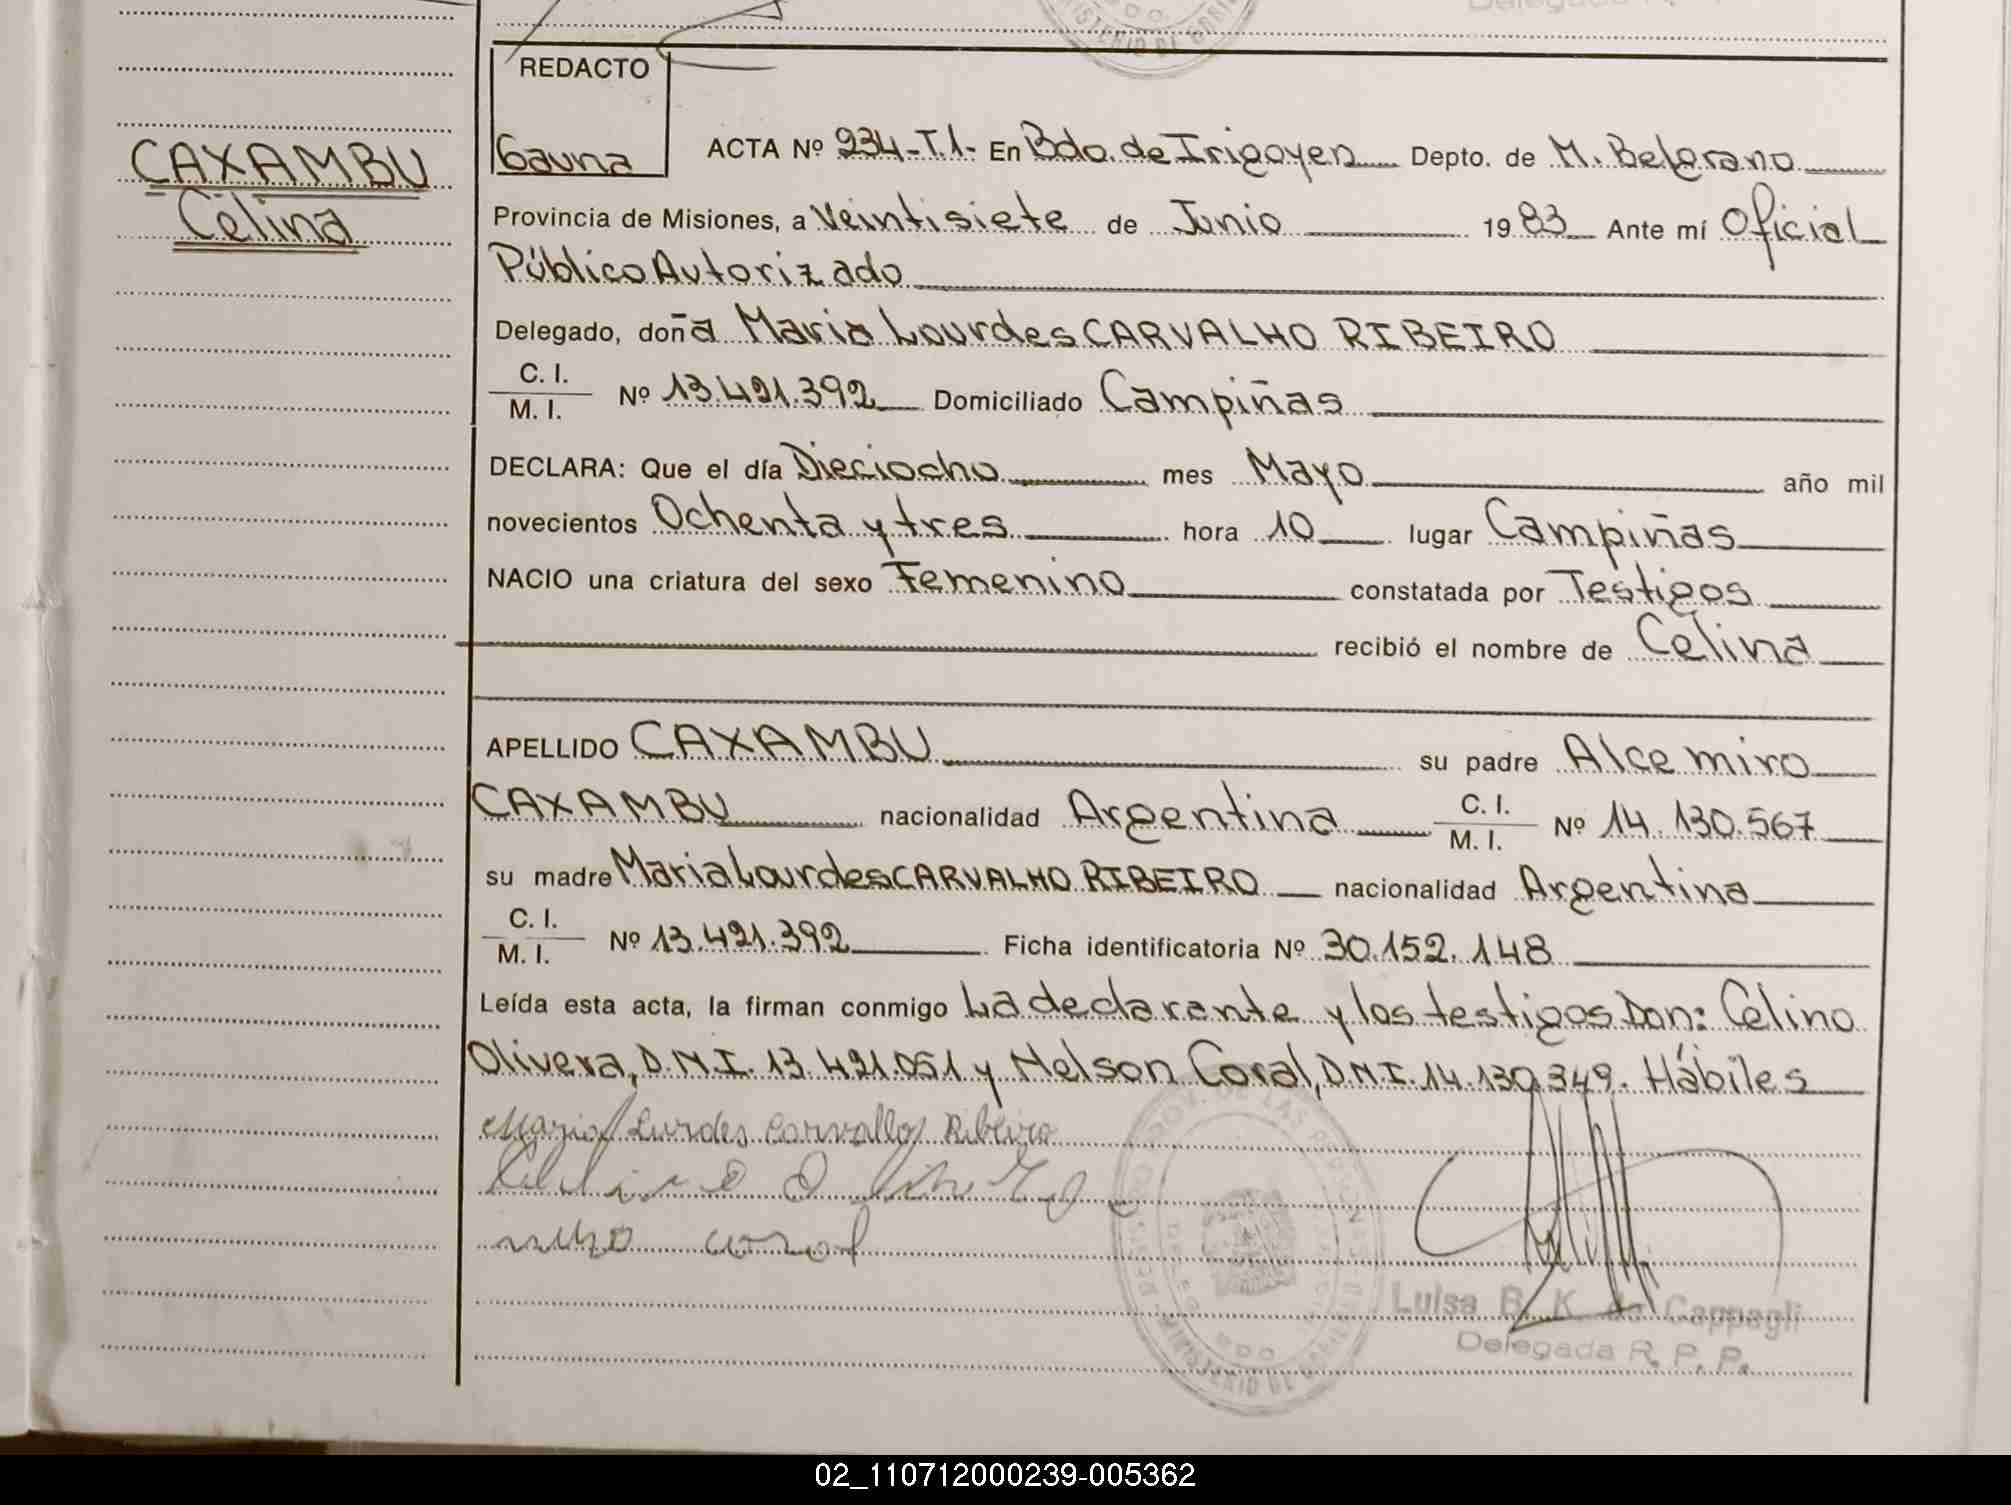 REDACTO
Gauna
CAXAMBU
Celina
ACTA Nº 234-T.1- En Bdo. de Irigoyen Depto. de M. Belgrano
Provincia de Misiones, a Veintisiete de Junio 1983 Ante mí Oficial
Público Autorizado
Delegado, doña Maria Lourdes CARVALHO RIBEIRO
C. I.
M. I. Nº 13.421.392 Domiciliado Campiñas
DECLARA: Que el día Dieciocho mes Mayo año mil
novecientos Ochenta y tres hora 10 lugar Campiñas
NACIO una criatura del sexo Femenino constatada por Testigos
recibió el nombre de Celina
APELLIDO CAXAMBU su padre Alcemiro
CAXAMBU nacionalidad Argentina C. I. M. I. Nº 14.130.567
su madre Maria Lourdes CARVALHO RIBEIRO nacionalidad Argentina
C. I.
M. I. Nº 13.421.392 Ficha identificatoria Nº 30.152.148
Leída esta acta, la firman conmigo La declarante y los testigos Don: Celino
Olivera, D.N.I. 13.421.051 y Nelson Coral, D.N.I. 14.130.349. Hábiles
Maria Lurdes Carvallo Ribeiro
coral
Luisa B. K. de Cappagli
Delegada R. P. P.
MINISTERIO DE
02_110712000239-005362